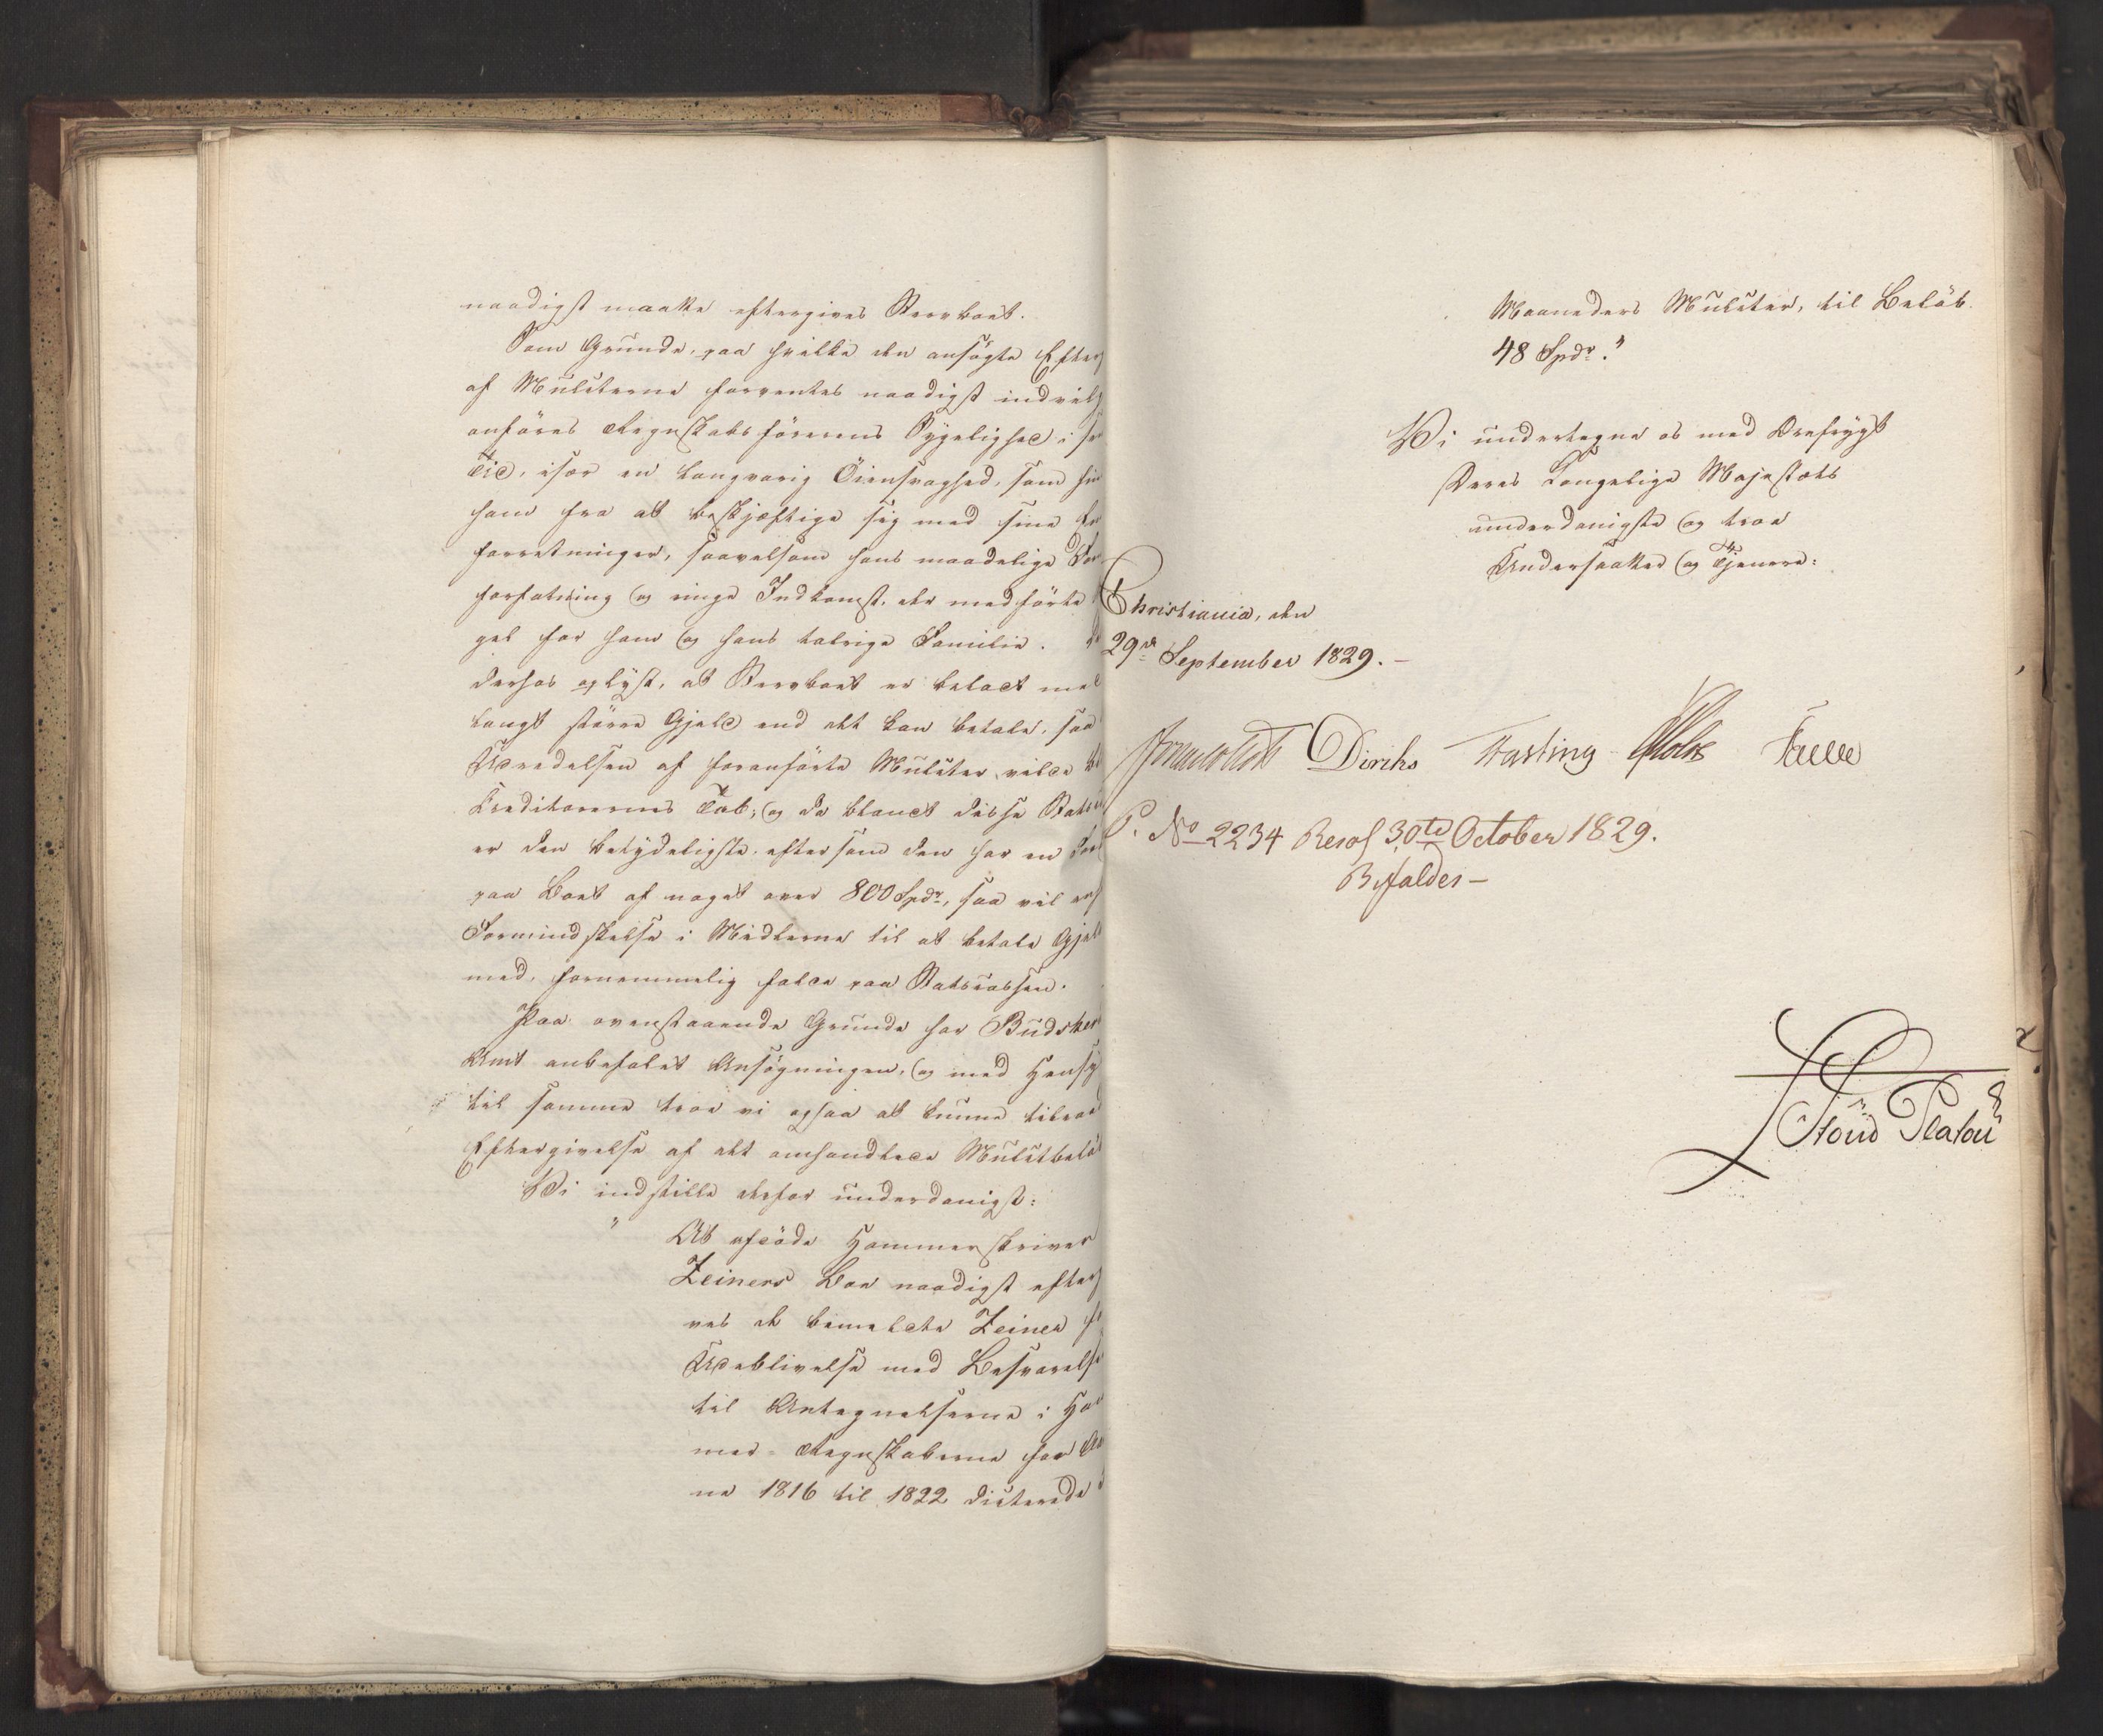 naadigst maatte eftergives Stervboet.
Som Grunde, paa hvilke den ansøgte Efterg
af Mulcterne forventes naadigst indvilg
anføres Regnskabsførerens Sygelighed i sen
Tid, især en langvarig Öiensvaghed, som hin
ham fra at beskjæftige sig med sine
forretninger, saavelsom hans maadelige For
forfatning og ringe Indkomst, der medførte
gel for ham og hans talrige Familie.
derhos oplyst, at Stervboet er belast med
langt større Gjeld end det kan betale, saa
Udredelsen af foranførte Mulcter vilde bl
Creditorernes Tab; og da blandt disse Statsc
er den betydeligste, eftersom den har en ford
paa Boet af noget over 800 Spdr, saa vil enh
Formindskelse i Midlerne til at betale Gjeld
med, fornemmelig falde paa Statscassen.
Paa ovenstaaende Grunde har Budsker
Amt anbefalet Ansøgningen, og med Hensy
til samme troe vi ogsaa at kunne tilraad
Eftergivelse af det omhandlede Mulctbelø
Vi indstille derfor underdanigst:
" At afdøde Hammerskriver
Zeiners Boe naadigst efterg
ves de bemeldte Zeiner fo
Udeblivelse med Besvarelse
til Antegnelserne i Ham
mer-Regnskaberne for Aa
ne 1816 til 1822 dicterede
Maaneders Mulcter, til Beløb
48 Spdr."
Vi undertegne os med Ærefrygt
Deres Kongelige Majestæts
underdanigste og troe
Undersaatter og Tjenere:
Christiania, den
29de September 1829.-
Diriks Fasting Holst
P. No 2234 Resol 30te October 1829.
Bifaldes-
Stoud Platou